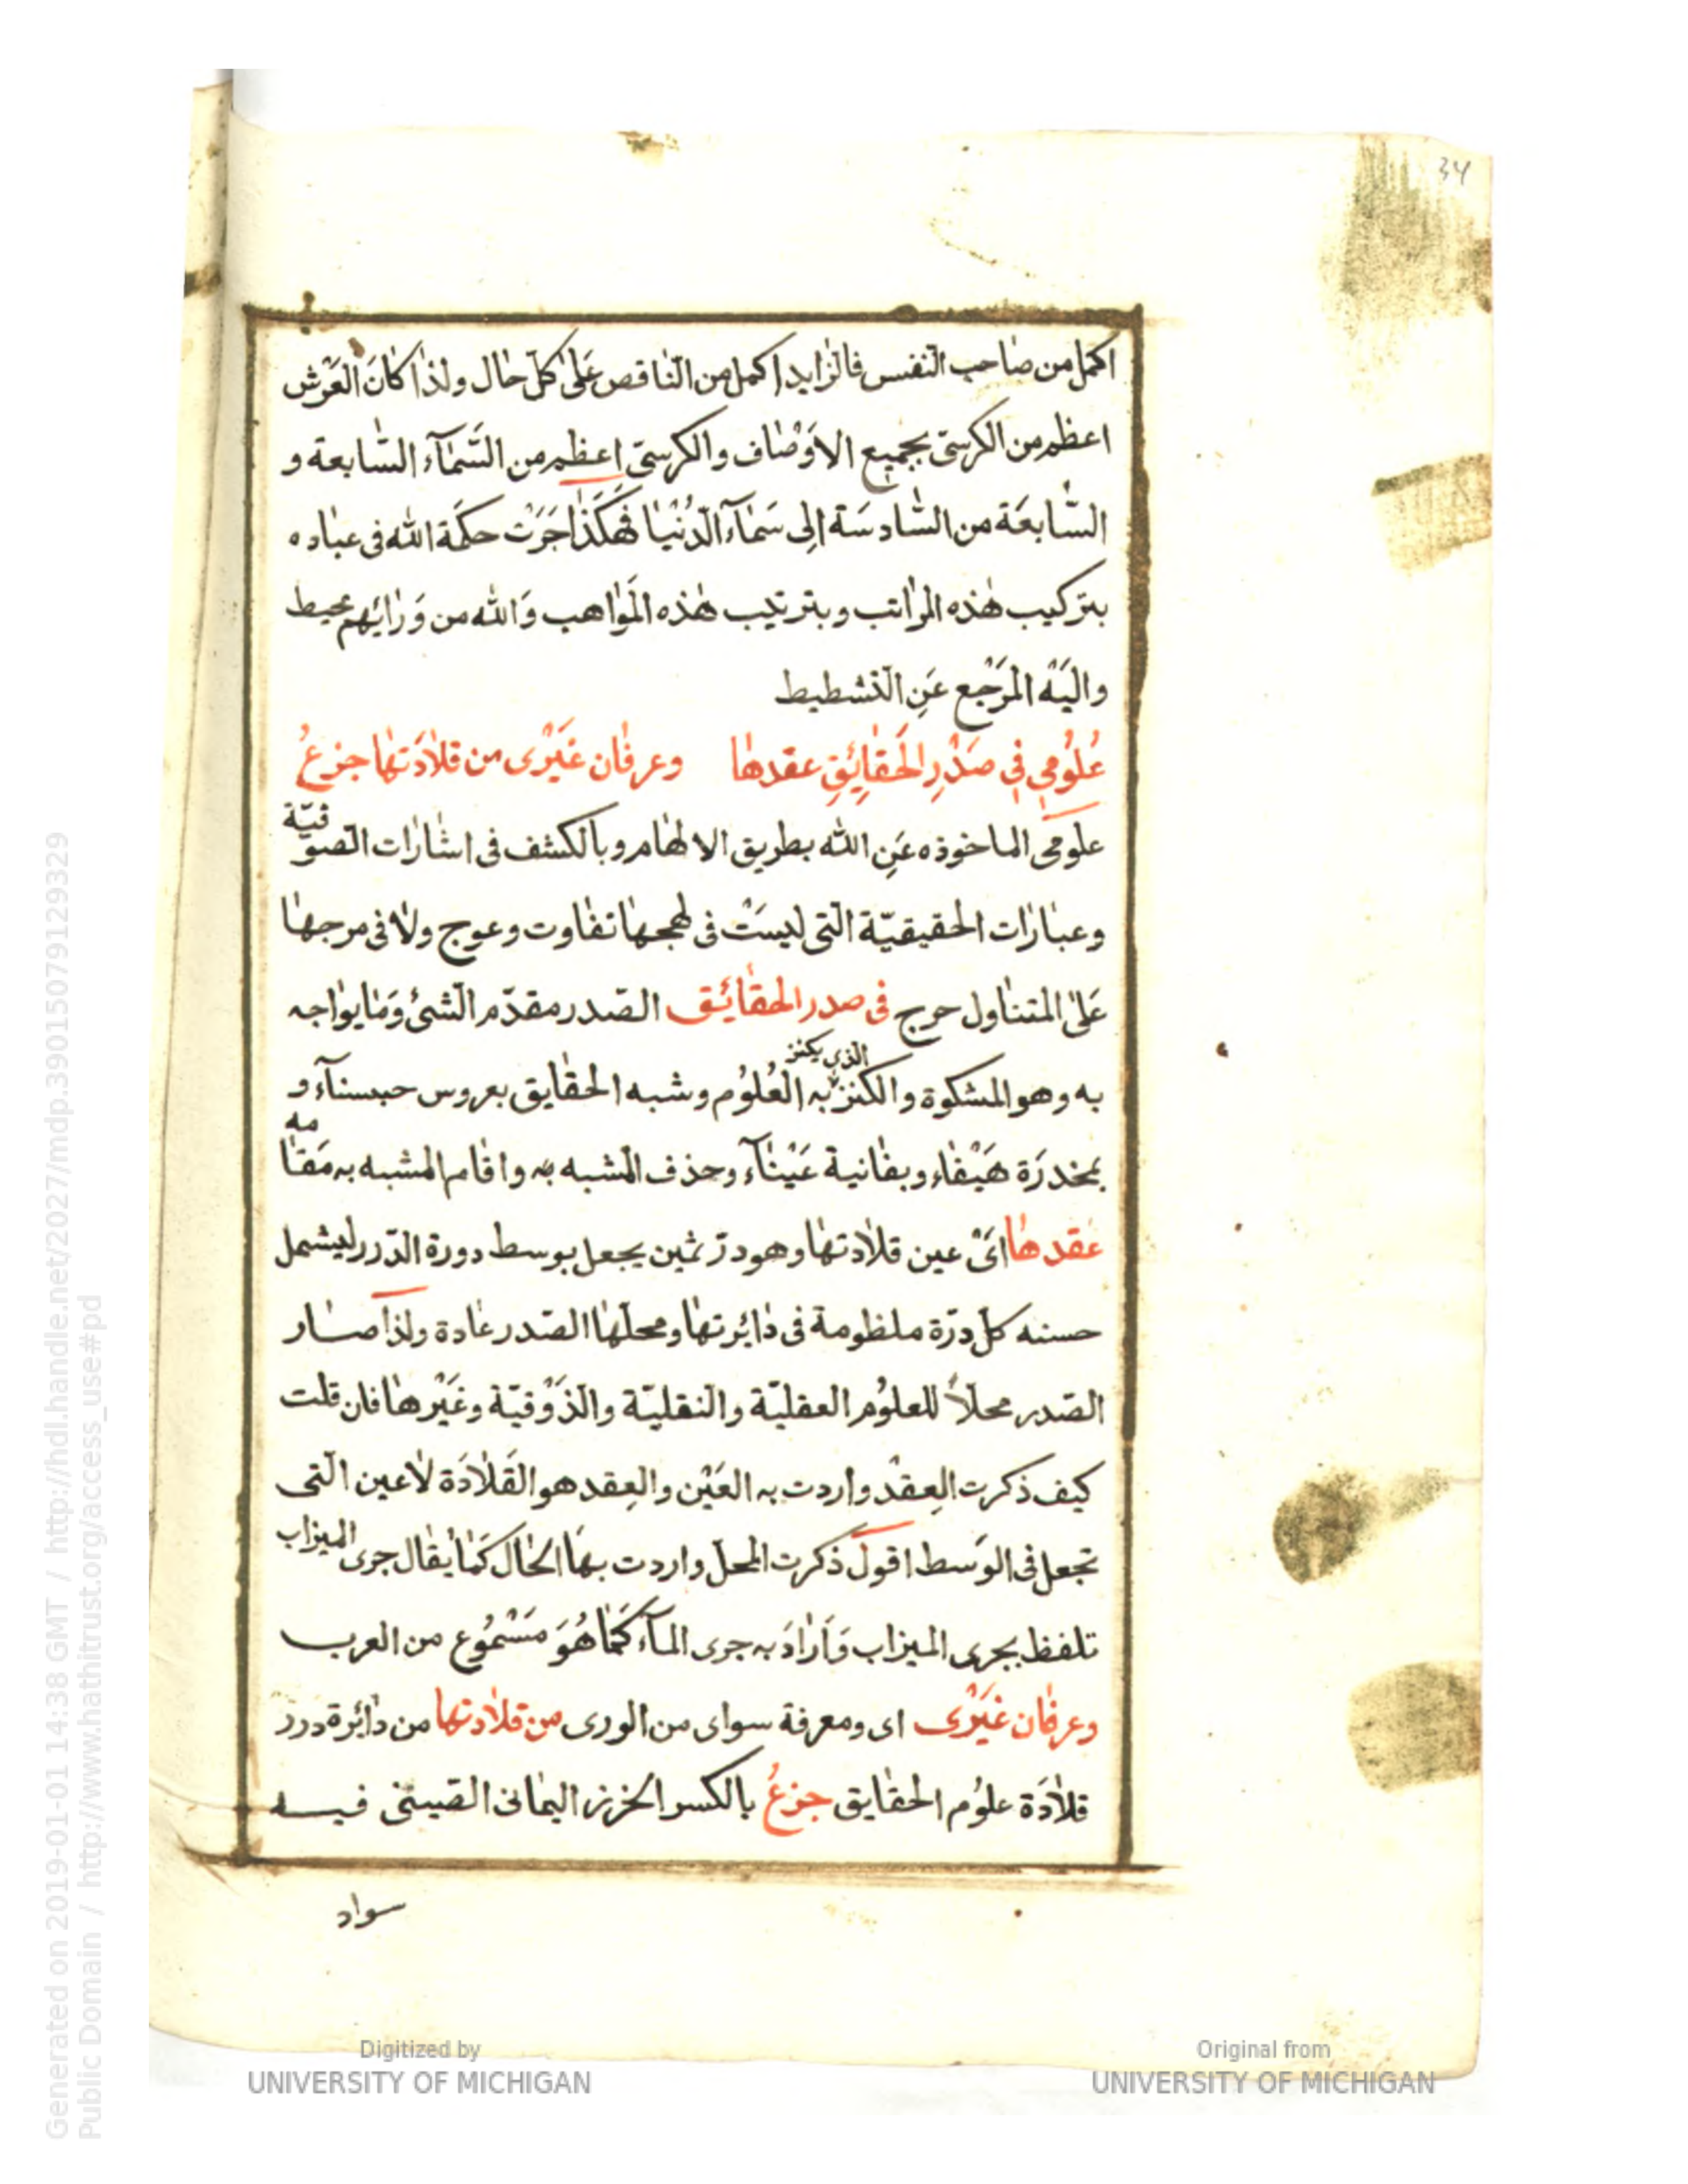 34
اكمل من صاحب النفس فالزايد اكمل من الناقص على كل حال ولذا كان العرش
اعظم من الكرسى بجميع الاوصاف والكرسى اعظم من السماء السابعة و
السابعة من السادسة الى سماء الدنيا فهكذا جرت حكمة الله فى عباده
بتركيب هذه المراتب وبترتيب هذه المواهب والله من ورائهم محيط
واليه المرجع عن التشطيط
علومى فى صدر الحقائق عقدها وعرفان غيرى من قلادتها جزع
علومى الماخوذه عن الله بطريق الالهام وبالكشف فى اشارات الصوفية
وعبارات الحقيقية التى ليست فى لهجها تفاوت وعوج ولا فى مرجها
على المتناول حرج فى صدر الحقائق الصدر مقدم الشئ وما يواجه
به وهو المشكوة والكنز الذى يكنز به العلوم وشبه الحقايق بعروس حسناء و
بمخدرة هيفاء وبغانية عيناء وحذف المشبه به واقام المشبه به مقامه
عقدها اى عين قلادتها وهو در ثمين يجعل بوسط دورة الدرر ليشمل
حسنه كل درة منظومة فى دائرتها ومحلها الصدر عادة ولذا صار
الصدر محلا للعلوم العقلية والنقلية والذوقية وغيرها فان قلت
كيف ذكرت العقد واردت به العين والعقد هو القلادة لا عين التى
تجعل فى الوسط اقول ذكرت المحل واردت بها الحال كما يقال جرى الميزاب
تلفظ بجرى الميزاب واراد به جرى الماء كما هو مسموع من العرب
وعرفان غيرى اى ومعرفة سواى من الورى من قلادتها من دائرة درر
قلادة علوم الحقايق جزع بالكسر الخرز اليمانى الصينى فيه
سواد
Digitized by
UNIVERSITY OF MICHIGAN
Original from
UNIVERSITY OF MICHIGAN
Generated on 2019-01-01 14:38 GMT / http://hdl.handle.net/2027/mdp.39015079129329
Public Domain / http://www.hathitrust.org/access_use#pd